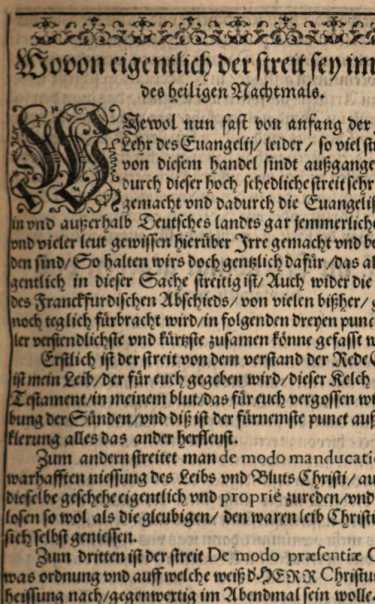 Wovon eigentlich der streit sey im
des heiligen Nachtmals.
WIewol nun fast von anfang der
Lehr des Euangelij/ leider/ so viel
von diesem handel sindt außgange
durch dieser hoch schedliche streit sehr
gemacht vnd dadurch die Euangelis
in vnd außerhalb Deutsches landts gar jemmerliche
vnd vieler leut gewissen hierüber Irre gemacht vnd
den sind/ So halten wirs doch gentzlich dafür/ das al
gentlich in dieser Sache streitig ist/ Auch wider die
des Franckfurdischen Abschieds/ von vielen bißher/
noch teglich fürbracht wird/ in folgenden dreyen punc
ler verstendlichste vnd kürtzste zusamen könne gefasst w
Erstlich ist der streit von dem verstand der Rede
ist mein Leib/ der für euch gegeben wird/ dieser Kelch
Testament/ in meinem blut/ das für euch vergossen wi
bung der Sünden/ vnd diß ist der fürnemste punct auß
klerung alles das ander herfleust.
Zum andern streitet man de modo manducati
warhafften niessung des Leibs vnd Bluts Christi/ au
dieselbe geschehe eigentlich vnd propriè zureden/ vnd
losen so wol als die gleubigen/ den waren leib Christi
sich selbst geniessen.
Zum dritten ist der streit De modo præsentiæ C
was ordnung vnd auff welche weiß d HERR Christus
heissung nach/ gegenwertig im Abendmal sein wolle